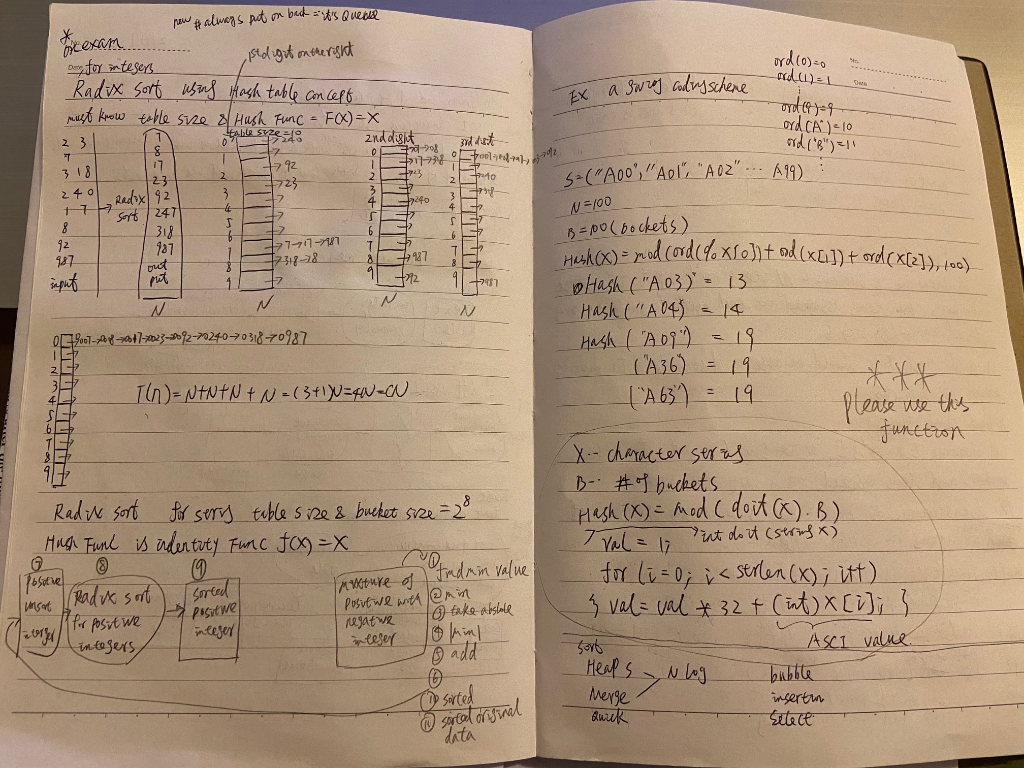 new # always put on back = it's Queue
*
on exam
Date for integers
1st digit on the right
Radix sort using Hash table concept
must know table size & Hash Func = F(X)=X
table size=10
2 3
7
3 1 8
2 4 0
1 7
8
92
987
input
→ Radix sort
7
8
17
23
92
247
318
987
out put
N
0 → 240
1
2 → 92
3 → 23
4
5
6
7 → 7 → 17 → 987
8 → 318 → 8
9
N
2nd digit
0
1
2 → 23
3
4 → 240
5
6
7
8 → 987
9 → 92
N
3rd digit
0
1
2 → 240
3 → 318
4
5
6
7
8
9 → 987
N
0 → 0023 → 0092 → 0240 → 0318 → 0987
1
2
3
4
5
6
7
8
9
T(n) = N+N+N + N = (3+1)N = 4N = CN
Radix sort for string table size & bucket size = 2^8
Hash Func is indentity Func f(X) = X
⑦
positive
unsort
⑧
Radix sort
for positive
integers
⑨
sorted
positive
integer
mixture of
positive with
negative
integer
① find min value
② min
③ take absolute
④ |min|
⑤ add
⑥
sorted
sorted original
data
No.
Date
ord(0)=0
ord(1)=1
ord(9)=9
ord('A')=10
ord("B")=11
EX a string coding scheme
S=("A00","A01","A02" ... A99)
N=100
B=100 (buckets)
Hash(X)=mod(ord(X[0])+ord(X[1])+ord(X[2]),100)
Hash("A03") = 13
Hash("A04) = 14
Hash("A09") = 19
("A36") = 19
("A63") = 19
* * *
Please use this
function
X-- character string
B-- # of buckets
Hash(X) = mod(doit(X). B)
int doit(string X)
val = 1;
for (i=0; i<strlen(X); i++)
{ val = val * 32 + (int)X[i]; }
ASCI value
sort
Heap s
Merge
N log
quick
bubble
insertion
select